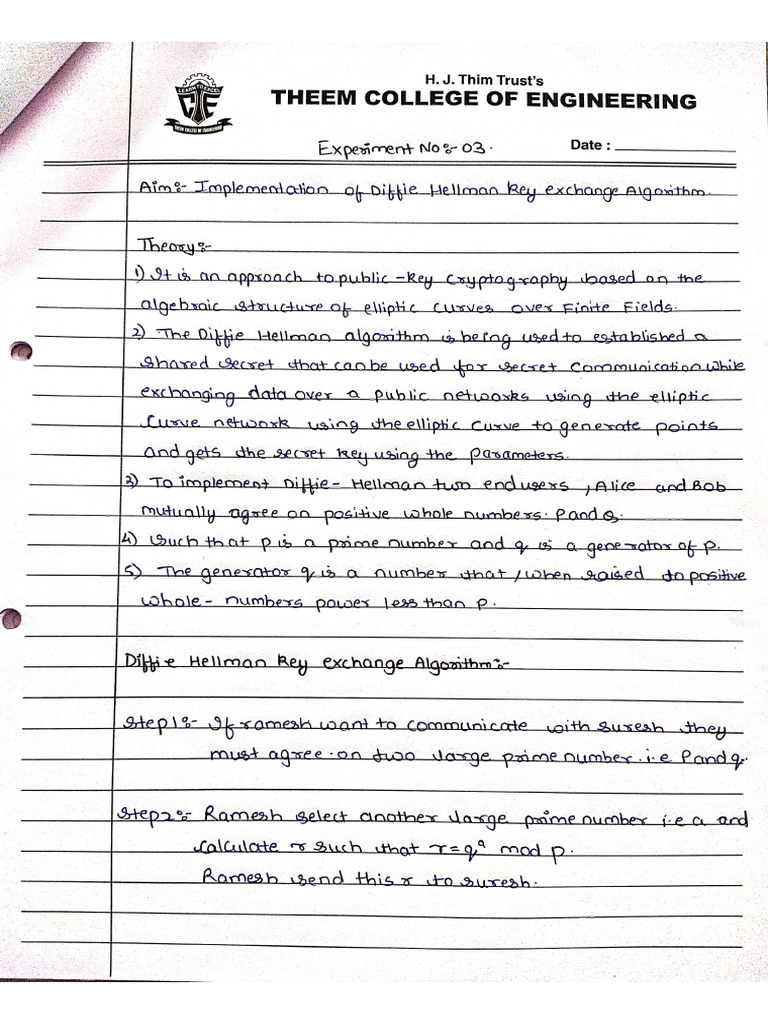 H. J. Thim Trust's
THEEM COLLEGE OF ENGINEERING
LEARN TO EXCEL
THEEM COLLEGE OF ENGINEERING
Experiment No:- 03.
Date :
Aim:- Implementation of Diffie Hellman Key exchange Algorithm.
Theory:-
1) It is an approach to public-key cryptography based on the
algebraic structure of elliptic curves over Finite Fields.
2) The Diffie Hellman algorithm is being used to established a
shared secret that can be used for secret communication while
exchanging data over a public networks using the elliptic
curve network using the elliptic curve to generate points
and gets the secret key using the parameters.
3) To implement Diffie-Hellman two end users, Alice and Bob
mutually agree on positive whole numbers. P and Q.
4) Such that p is a prime number and q is a generator of p.
5) The generator q is a number that, when raised to positive
whole-numbers power less than p.
Diffie Hellman Key exchange Algorithm:-
Step1:- If ramesh want to communicate with suresh they
must agree on two large prime number. i.e P and q.
Step2:- Ramesh select another large prime number i.e a and
calculate r such that r=q^a mod p.
Ramesh send this r to suresh.